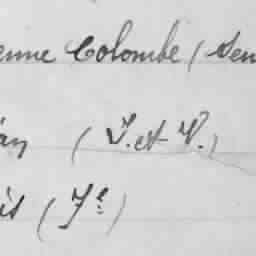 enne Colombe (Sen
an (I. et V.)
is (Je)